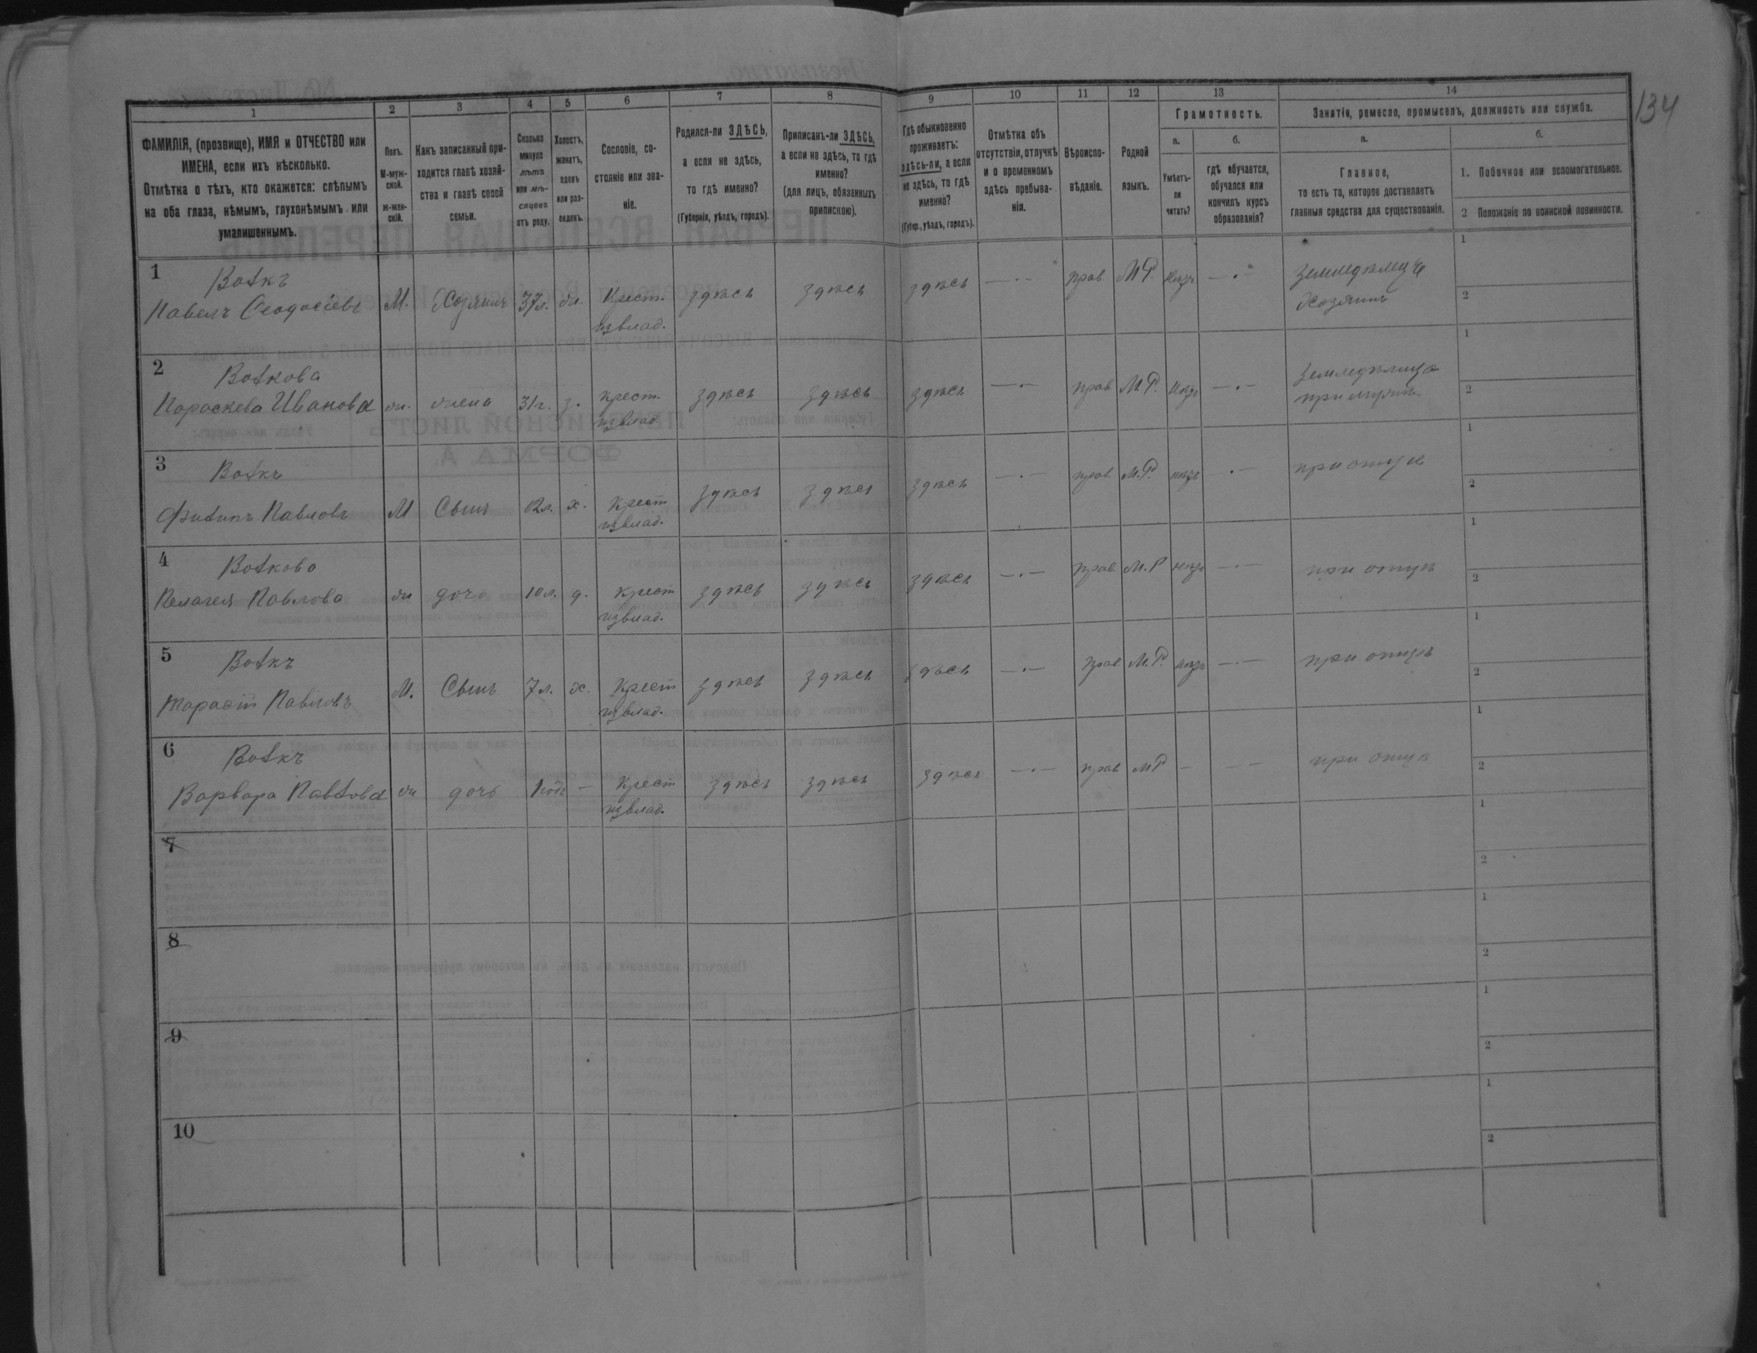 134
1 2 3 4 5 6 7 8 9 10 11 12 13 14
ФАМИЛІЯ, (прозвище), ИМЯ и ОТЧЕСТВО или
ИМЕНА, если ихъ нѣсколько.
Отмѣтка о тѣхъ, кто окажется: слѣпымъ
на оба глаза, нѣмымъ, глухонѣмымъ или
умалишеннымъ.
Полъ.
М-муж-
ской.
ж-жен-
скій.
Какъ записанный при-
ходится главѣ хозяй-
ства и главѣ своей
семьи.
Сколько
минуло
лѣтъ
или мѣ-
сяцевъ
отъ роду.
Холостъ,
женатъ,
вдовъ
или раз-
веденъ.
Сословіе, со-
стояніе или зва-
ніе.
Родился-ли ЗДѢСЬ,
а если не здѣсь,
то гдѣ именно?
(Губернія, уѣздъ, городъ).
Приписанъ-ли ЗДѢСЬ,
а если не здѣсь, то гдѣ
именно?
(для лицъ, обязанныхъ
припискою).
Гдѣ обыкновенно
проживаетъ:
здѣсь-ли, а если
не здѣсь, то гдѣ
именно?
(Губер., уѣздъ, городъ).
Отмѣтка объ
отсутствіи, отлучкѣ
и о временномъ
здѣсь пребыва-
ніи.
Вѣроиспо-
вѣданіе.
Родной
языкъ.
Грамотность.
а.
Умѣетъ-
ли
читать?
б.
гдѣ обучается,
обучался или
кончилъ курсъ
образованія?
Занятіе, ремесло, промыселъ, должность или служба.
а.
Главное,
то есть то, которое доставляетъ
главныя средства для существованія.
б.
1. Побочное или вспомогательное.
2 Положеніе по воинской повинности.
1
Павелъ Феодосіевъ М. Хозяинъ 37л. Крест. здѣсь здѣсь здѣсь прав М.Р. Земледѣлецъ
извлад. Хозяинъ
1
2
2
Параскева Иванова жена 31г. з. Крест здѣсь здѣсь здѣсь прав М.Р.
извлад при мужѣ
1
2
3
Филипъ Павловъ М Сынъ х. Крест здѣсь здѣсь здѣсь прав М.Р. при отцѣ
извлад.
1
2
4
Пелагея Павлова дочь 10л. д. Крест здѣсь здѣсь здѣсь прав М.Р при отцѣ
извлад.
1
2
5
Тарасій Павловъ М. Сынъ 7л. х. Крест здѣсь здѣсь здѣсь прав М.Р. при отцѣ
извлад.
1
2
6
Варвара Павлова дочь 1годъ — Крест здѣсь здѣсь здѣсь прав МР при отцѣ
извлад.
1
2
7
1
2
8
1
2
9
1
2
10
1
2